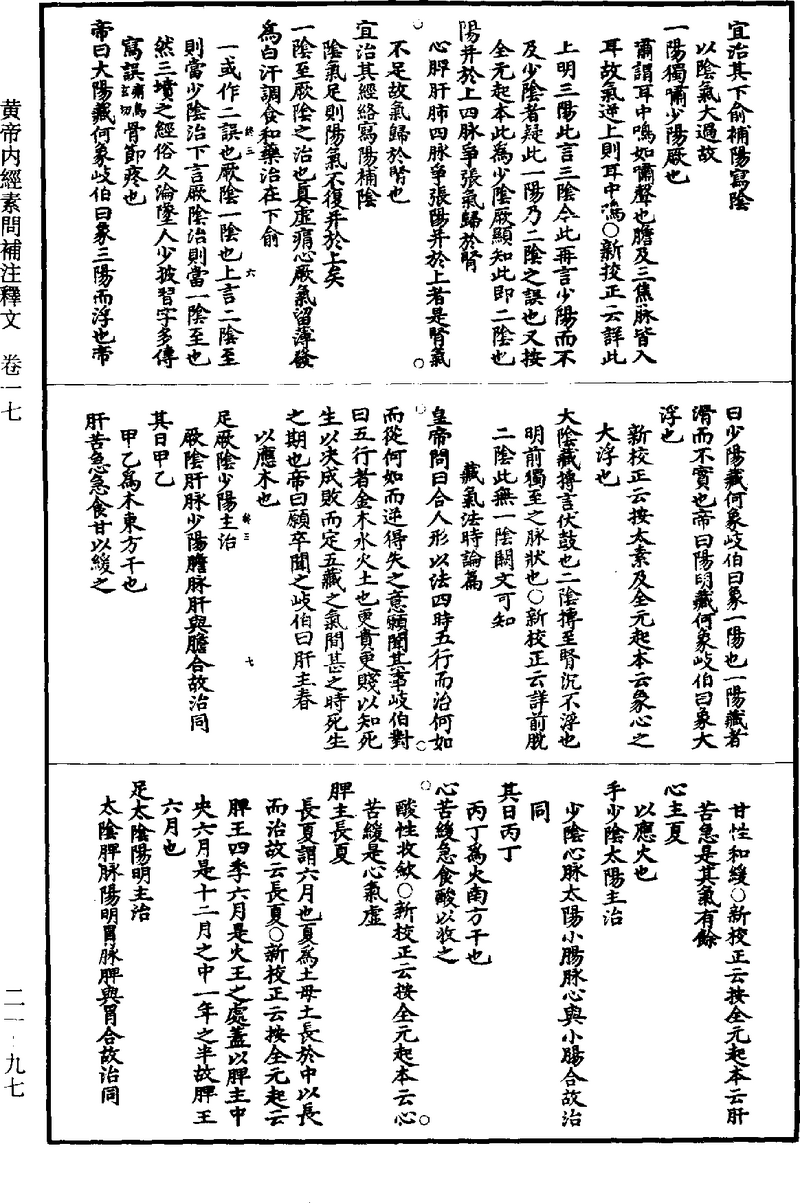 宜治其下俞補陽寫陰
以陰氣大過故
一陽獨嘯少陽厥也
嘯謂耳中鳴如嘯聲也膽及三焦脉皆入
耳故氣逆上則耳中鳴○新校正云詳此
上明三陽此言三陰今此再言少陽而不
及少陰者疑此一陽乃二陰之誤也又按
全元起本此爲少陰厥顯知此即二陰也
陽并於上四脉爭張氣歸於腎
心脾肝肺四脉爭張陽并於上者是腎氣
不足故氣歸於腎也
宜治其經絡寫陽補陰
陰氣足則陽氣不復并於上矣
一陰至厥陰之治也真虛痟心厥氣留薄發
爲白汗調食和藥治在下俞
一或作二誤也厥陰一陰也上言二陰至
則當少陰治下言厥陰治則當一陰至也
然三墳之經俗久淪墜人少披習字多傳
寫誤
骨節疼也
帝曰大陽藏何象岐伯曰象三陽而浮也帝
曰少陽藏何象岐伯曰象一陽也一陽藏者
滑而不實也帝曰陽明藏何象岐伯曰象大
浮也
新校正云按太素及全元起本云象心之
大浮也
大陰藏摶言伏鼓也二陰摶至腎沉不浮也
明前獨至之脉狀也○新校正云詳前脫
二陰此無一陰闕文可知
藏氣法時論篇
皇帝問曰合人形以法四時五行而治何如
而從何如而逆得失之意願聞其事岐伯對
曰五行者金木水火土也更貴更賤以知死
生以决成敗而定五藏之氣間甚之時死生
之期也帝曰願卒聞之岐伯曰肝主春
以應木也
足厥陰少陽主治
厥陰肝脉少陽膽脉肝與膽合故治同
其日甲乙
甲乙爲木東方干也
肝苦急急食甘以緩之
甘性和緩○新校正云按全元起本云肝
苦急是其氣有餘
心主夏
以應火也
手少陰太陽主治
少陰心脉太陽小腸脉心與小腸合故治
同
其日丙丁
丙丁爲火南方干也
心苦緩急食酸以收之
酸性收斂○新校正云按全元起本云心
苦緩是心氣虛
脾主長夏
長夏謂六月也夏爲土母土長於中以長
而治故云長夏○新校正云按全元起云
脾王四季六月是火王之處蓋以脾主中
央六月是十二月之中一年之半故脾王
六月也
足太陰陽明主治
太陰脾脉陽明胃脉脾與胃合故治同
黄帝内經素問補注釋文 卷一七
二一·九七